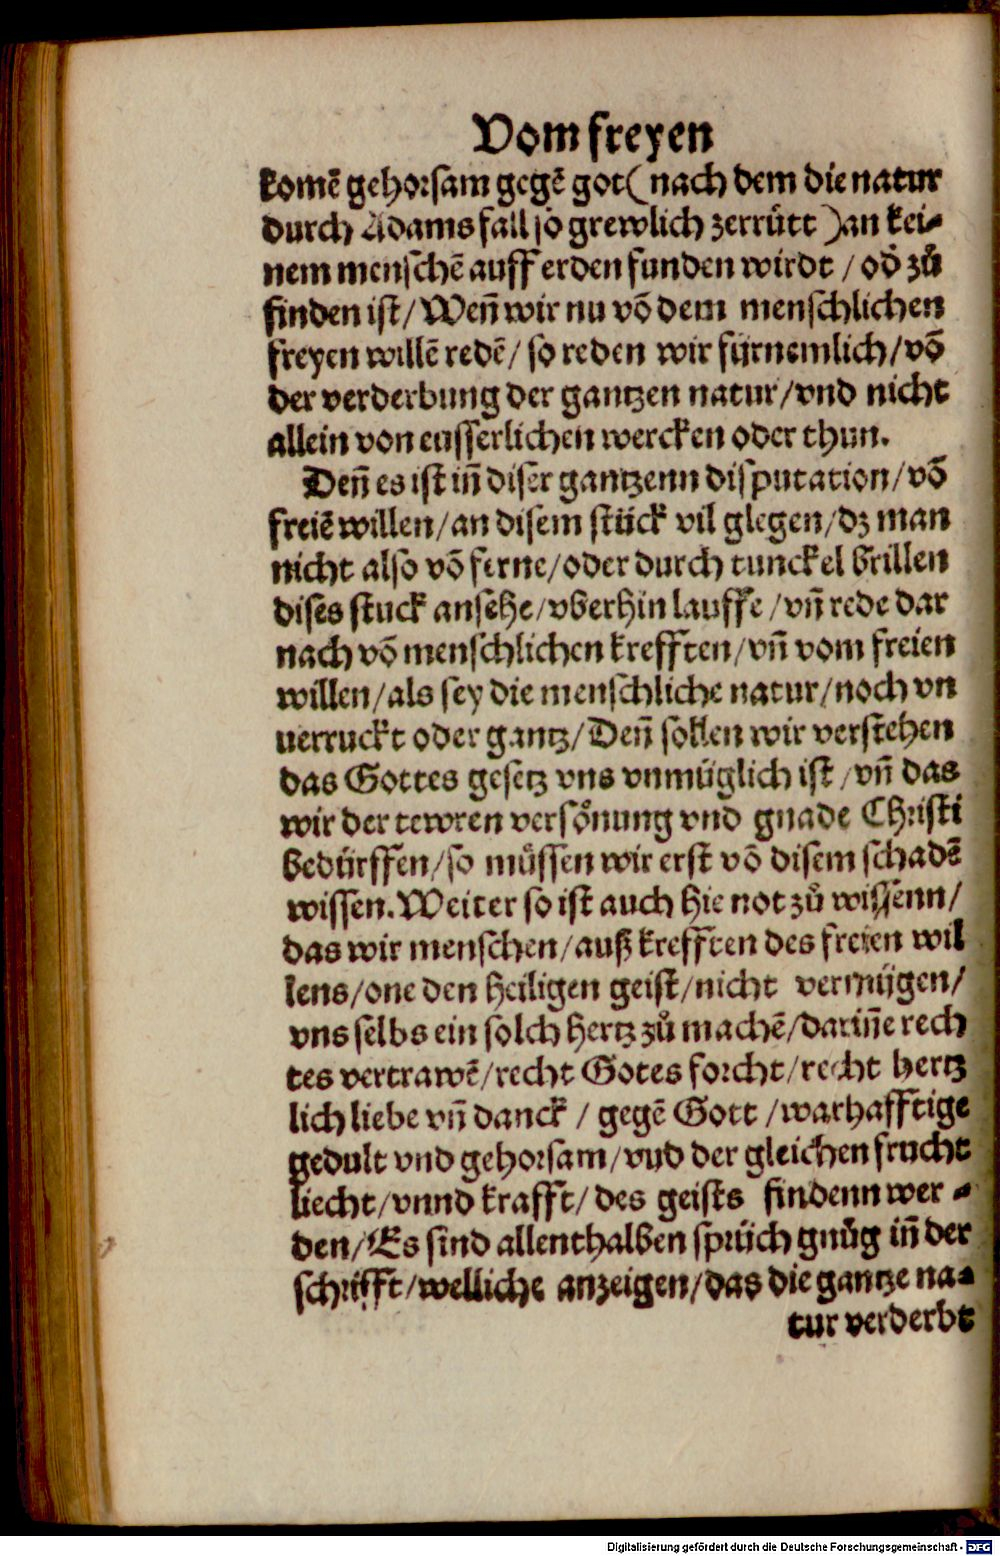 Vom freyen
komē gehorsam gegē got( nach dem die natur
durch Adams fall so grewlich zerrütt )an kei-
nem menschē auff erden funden wirdt / od' zů
finden ist/ Weñ wir nu võ dem menschlichen
freyen willē redē/ so reden wir fürnemlich/ võ
der verderbung der gantzen natur/ vnd nicht
allein von eusserlichen wercken oder thun.
Deñ es ist iñ diser gantzenn disputation/ võ
freiē willen/ an disem stück vil glegen/ dz man
nicht also võ ferne/ oder durch tunckel brillen
dises stuck ansehe/ vberhin lauffe / vñ rede dar
nach võ menschlichen krefften/ vñ vom freien
willen/ als sey die menschliche natur/ noch vn
uerruckt oder gantz/ Deñ sollen wir verstehen
das Gottes gesetz vns vnmüglich ist / vñ das
wir der tewren versönung vnd gnade Christi
bedürffen/ so müssen wir erst võ disem schadē
wissen. Weiter so ist auch hie not zů wissenn/
das wir menschen/ auß krefften des freien wil
lens/ one den heiligen geist/ nicht vermügen/
vns selbs ein solch hertz zů machē/ dariñe rech
tes vertrawē/ recht Gotes forcht/ recht hertz
lich liebe vñ danck / gegē Gott / warhafftige
gedult vnd gehorsam/ vnd der gleichen frucht
liecht/ vnnd krafft/ des geists findenn wer -
den/ Es sind allenthalben sprüch gnůg iñ der
schrifft/ welliche anzeigen/ das die gantze na-
tur verderbt
Digitalisierung gefördert durch die Deutsche Forschungsgemeinschaft - DFG